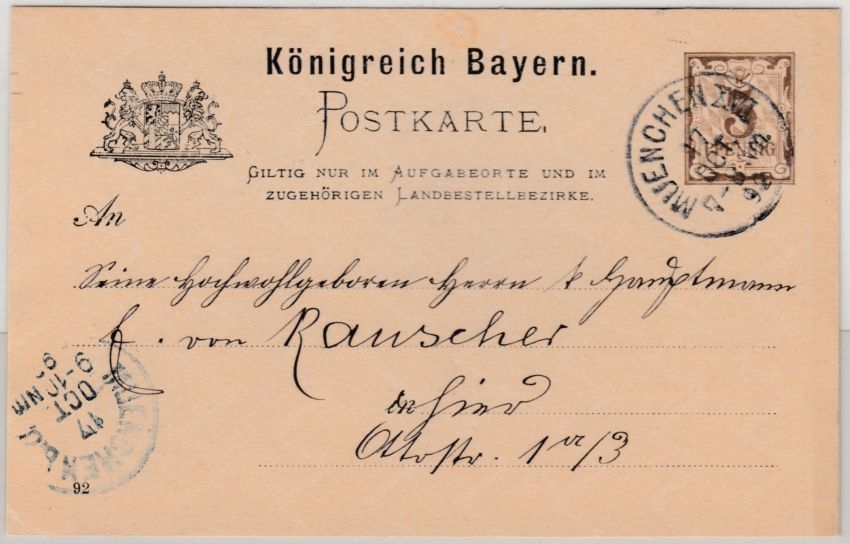 Königreich Bayern.
POSTKARTE.
GILTIG NUR IM AUFGABEORTE UND IM
ZUGEHÖRIGEN LANDBESTELLBEZIRKE.
3
MUENCHEN XVI
17
OCT
92
An
Seine Hochwohlgeboren Herrn k Hauptmann
von Rauscher
hier
Ottostr. 1a/3
MUENCHEN
17
OCT
9-10 NM
92